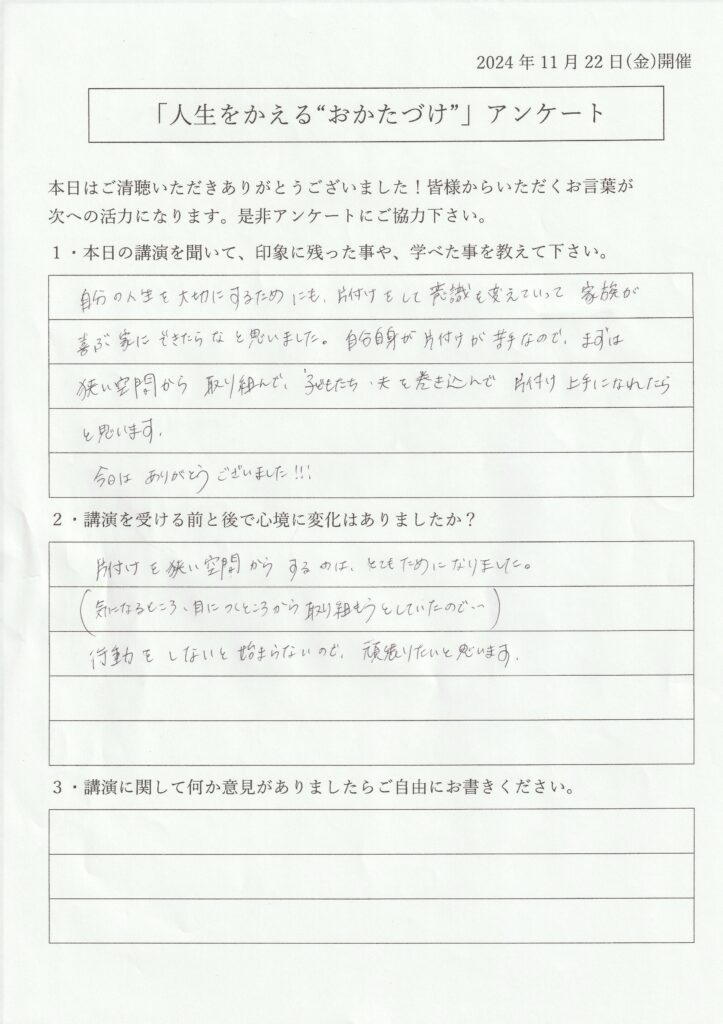 2024年11月22日(金)開催
「人生をかえる“おかたづけ”」アンケート
本日はご清聴いただきありがとうございました！皆様からいただくお言葉が
次への活力になります。是非アンケートにご協力下さい。
１・本日の講演を聞いて、印象に残った事や、学べた事を教えて下さい。
自分の人生を大切にするためにも、片付けをして意識を変えていって 家族が
喜ぶ家にできたらなと思いました。自分自身が片付けが苦手なので、まずは
狭い空間から 取り組んで、子どもたち・夫を巻き込んで 片付け上手になれたら
と思います。
今日は ありがとうございました!!!
２・講演を受ける前と後で心境に変化はありましたか？
片付けを狭い空間から するのは、とてもためになりました。
(気になるところ、目につくところから取り組もうとしていたので…)
行動をしないと始まらないので、頑張りたいと思います。
３・講演に関して何か意見がありましたらご自由にお書きください。